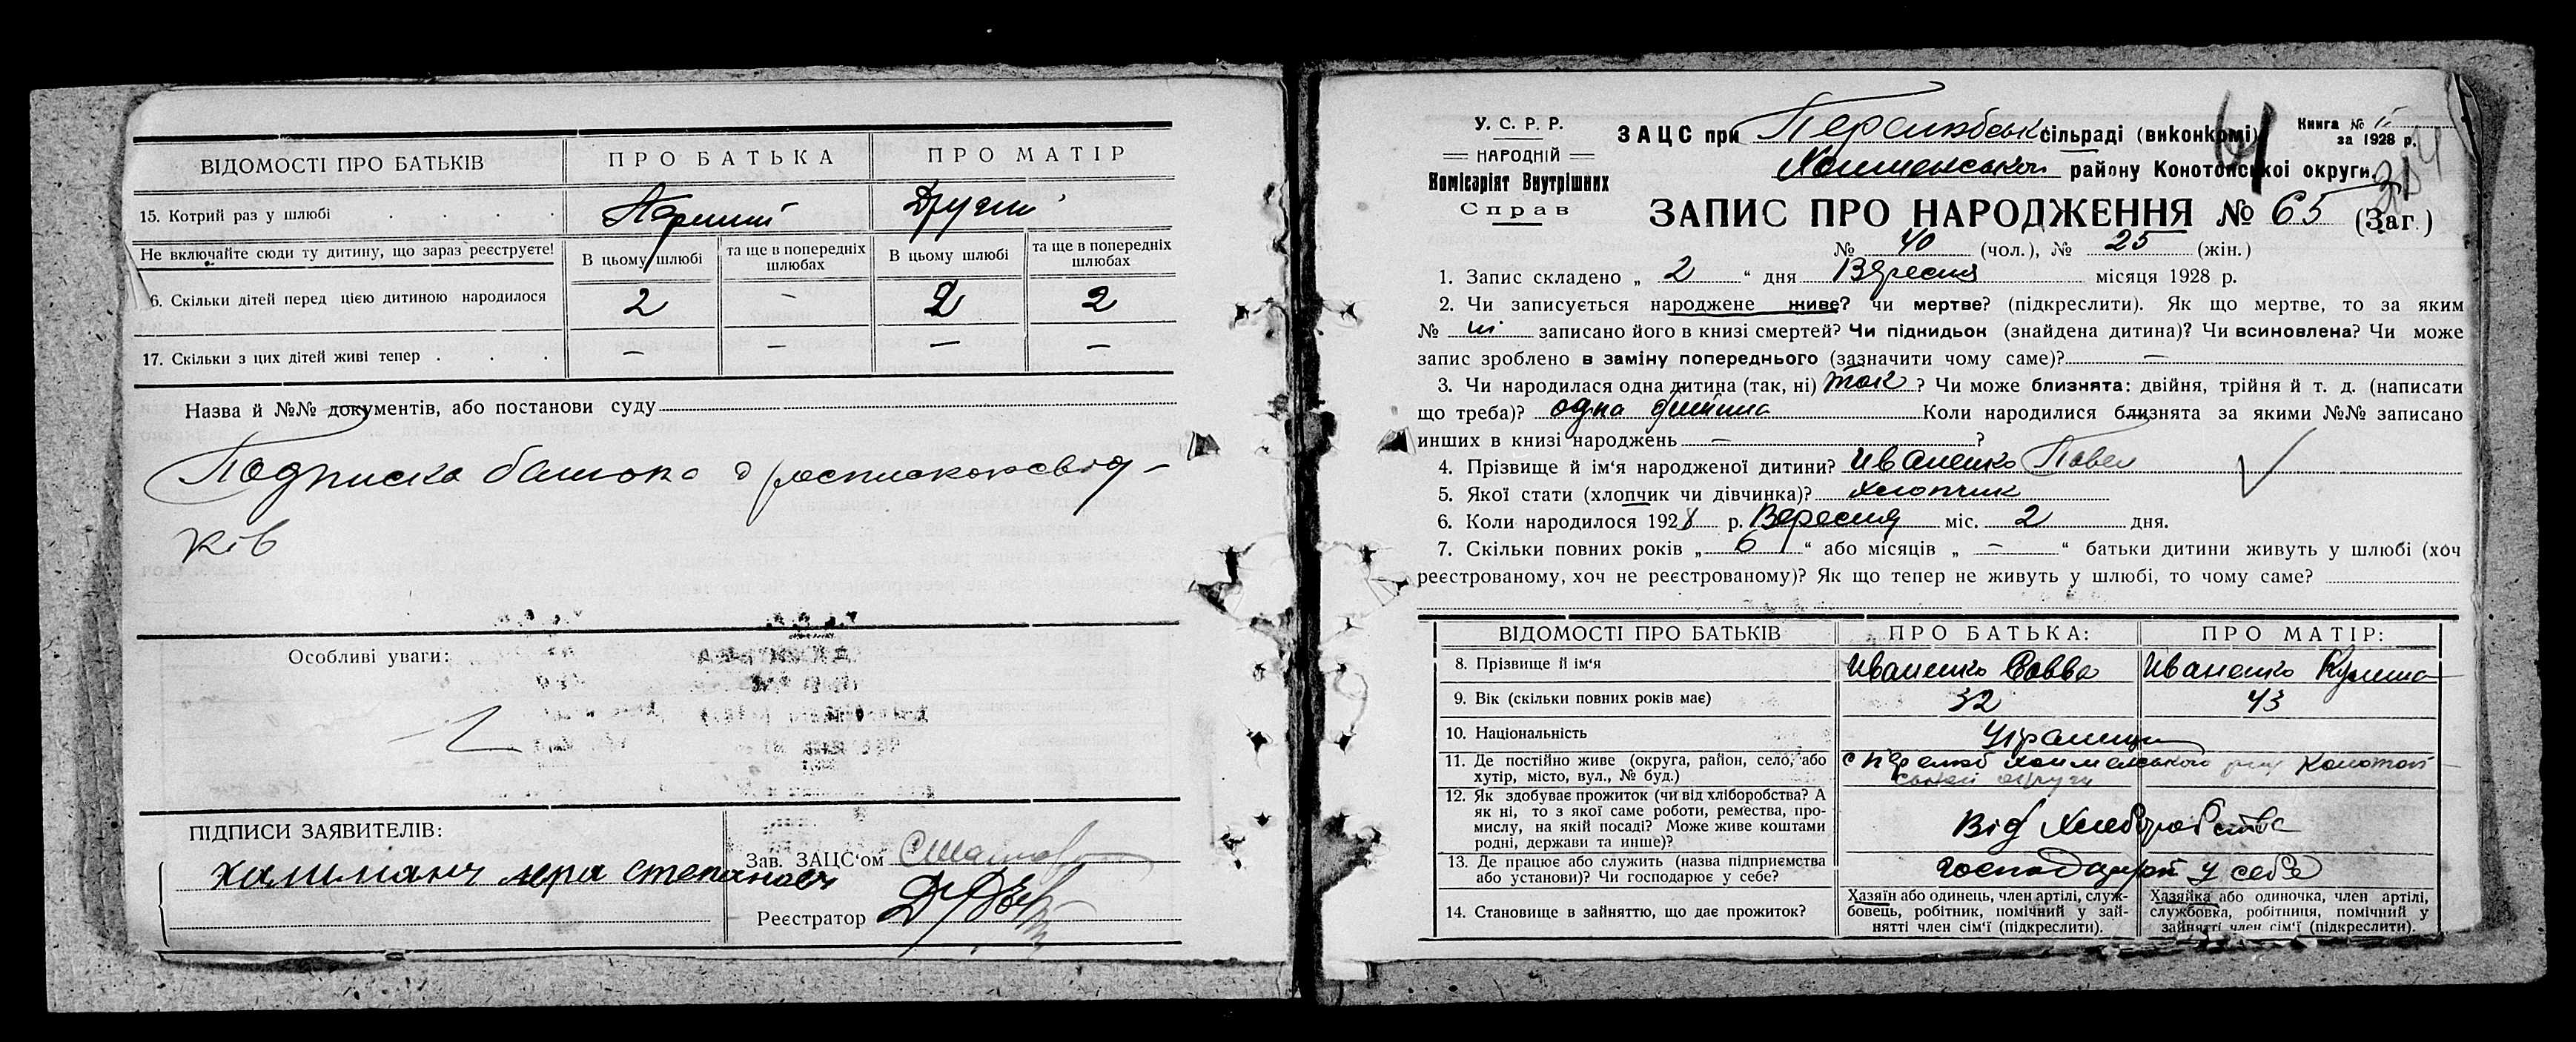 ВІДОМОСТІ ПРО БАТЬКІВ ПРО БАТЬКА ПРО МАТІР
15. Котрий раз у шлюбі . . . . Перший Другий
Не включайте сюди ту дитину, що зараз реєструєте! В цьому шлюбі та ще в попередніх шлюбах В цьому шлюбі та ще в попередніх шлюбах
6. Скільки дітей перед цією дитиною народилося 2 – 2 2
17. Скільки з цих дітей живі тепер . . . – – – –
Назва й №№ документів, або постанови суду
Подписка батька
ків
Особливі уваги:
ПІДПИСИ ЗАЯВИТЕЛІВ:
Зав. ЗАЦС'ом
Реєстратор
У. С. Р. Р.
НАРОДНІЙ
Комісаріят Внутрішних
Справ
ЗАЦС при Перелюбськ сільраді (виконкомі)
Холменського району Конотопської округи.
Книга № II
за 1928 р.
ЗАПИС ПРО НАРОДЖЕННЯ № 65 (Заг.)
№ 40 (чол.), № 25 (жін.)
1. Запис складено „ 2 “ дня Вересня місяця 1928 р.
2. Чи записується народжене живе? чи мертве? (підкреслити). Як що мертве, то за яким
№ ні записано його в книзі смертей? Чи підкидьок (знайдена дитина)? Чи всиновлена? Чи може
запис зроблено в заміну попереднього (зазначити чому саме)? –
3. Чи народилася одна дитина (так, ні) так ? Чи може близнята: двійня, трійня й т. д. (написати
що треба)? одна дитина Коли народилися близнята за якими №№ записано
инших в книзі народжень – ?
4. Прізвище й ім'я народженої дитини? Иваненко Павел
5. Якої стати (хлопчик чи дівчинка)? хлопчик
6. Коли народилося 1928 р. Вересня міс. 2 дня.
7. Скільки повних років „ 6 “ або місяців „ – “ батьки дитини живуть у шлюбі (хоч
реєстрованому, хоч не реєстрованому)? Як що тепер не живуть у шлюбі, то чому саме?
ВІДОМОСТІ ПРО БАТЬКІВ ПРО БАТЬКА: ПРО МАТІР:
8. Прізвище й ім'я Иваненко Савва Иваненко
9. Вік (скільки повних років має) 32 43
10. Національність Українці
11. Де постійно живе (округа, район, село, або хутір, місто, вул., № буд.) с Перелюб Холменського рай Конотопської округи
12. Як здобуває прожиток (чи від хліборобства? А як ні, то з якої саме роботи, ремества, промислу, на якій посаді? Може живе коштами родні, держави та инше)? Від Хлеборобства
13. Де працює або служить (назва підприємства або установи)? Чи господарює у себе? у себе
14. Становище в зайняттю, що дає прожиток? Хазяїн або одинець, член артілі, службовець, робітник, помічний у зайнятті член сім'ї (підкреслити). Хазяйка або одиночка, член артілі, службовка, робітниця, помічний у зайнятті член сім'ї (підкреслити).